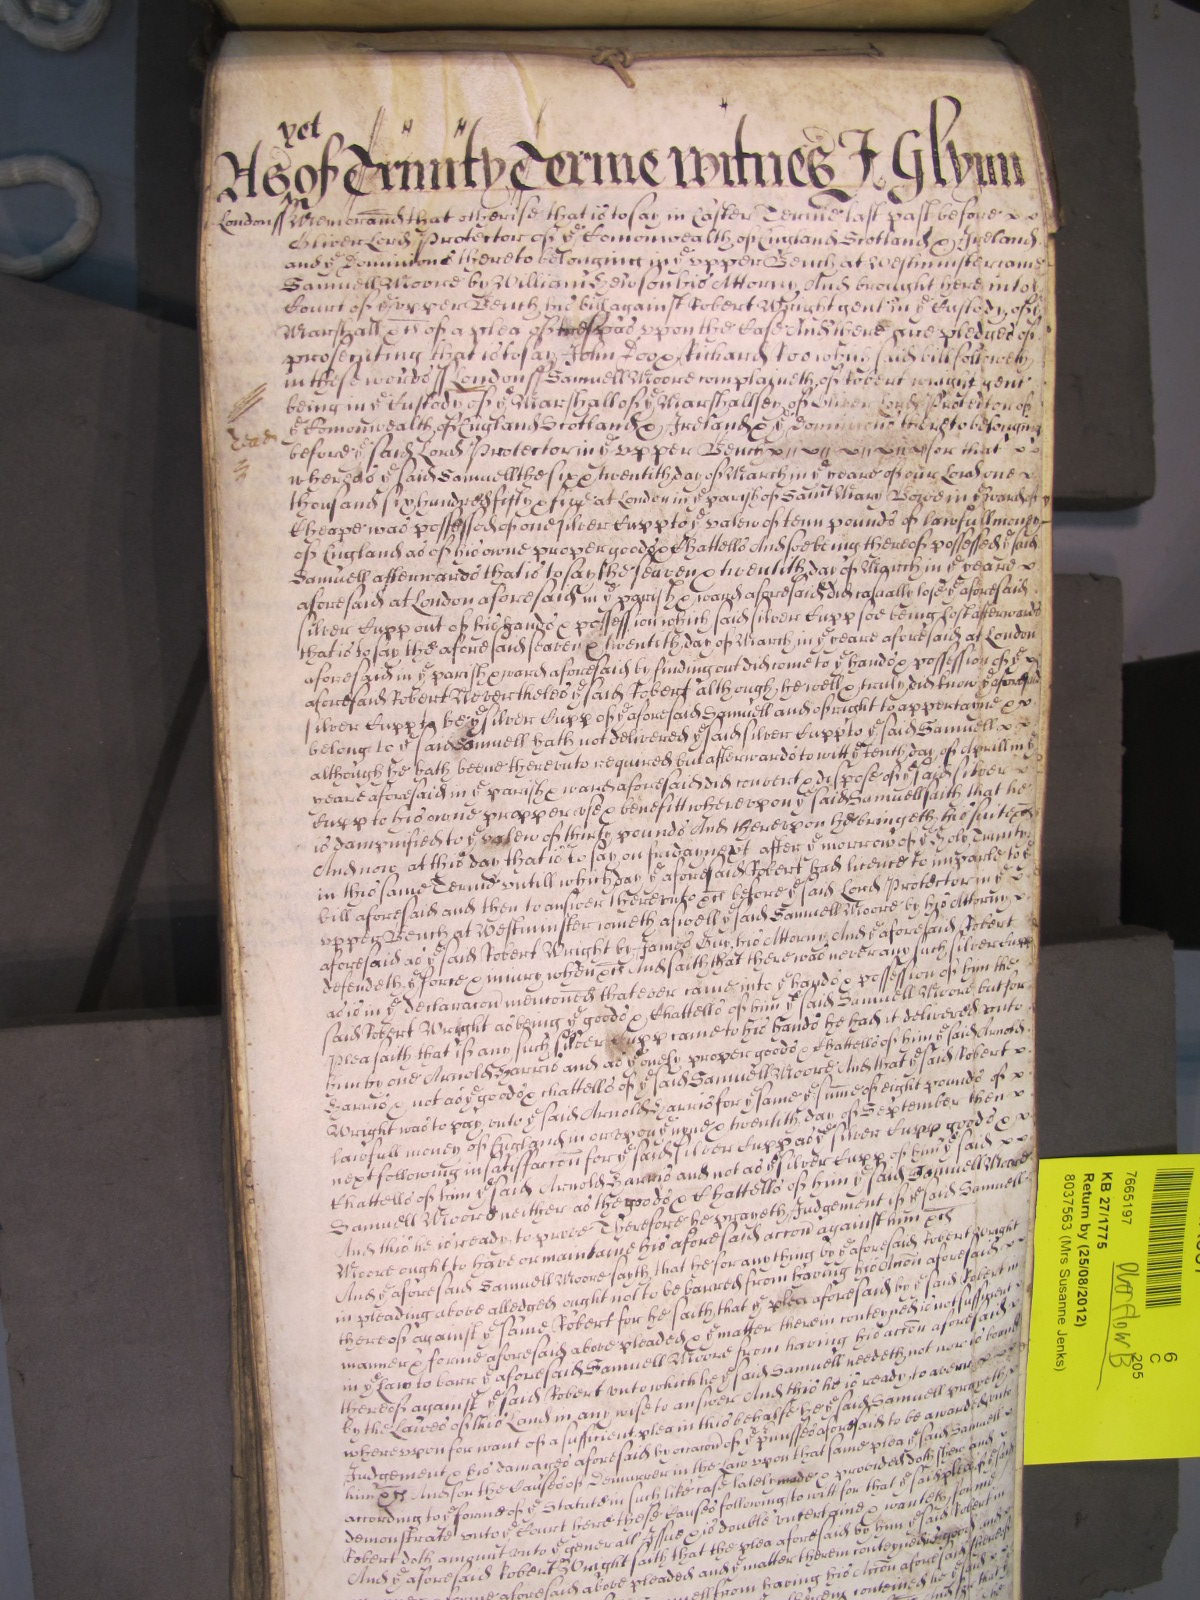 yet
As of Trinity Terme witnes J Glynn
Londonss Memorand that otherise that is to say in Easter Terme last past before
Oliver Lord Protector of ye Comonwealth of England Scotland & Ireland
and ye Dominions thereto belonging in ye upper Bench at Westminster came
Samuell Moore by William his Attorny And brought here into ye
Court of ye upper Bench his bill against Robert Wright gent in ye Custody of ye
Marshall &c of a plea of trespas uppon the Case And there are pledges of
prosecuting that is to say John Doo & Richard Roo which said bill followeth
in these words ss Londonss Samuell Moore complaineth of Robert Wright gent
being in ye Custody of ye Marshall of ye Marshallsey of Oliver Lord Protector of
ye Comonwealth of England Scotland & Ireland & ye dominions thereto belonging
before ye said Lord Protector in ye upper Bench for that
whereas ye said Samuell the six & twentith day of March in ye yeare of our Lord one
thousand six hundred fifty & five at London in ye parish of Saint Mary Bowe in ye ward of
Cheape was possessed of one silver Cupp to ye valew of tenn pounds of lawfull money
of England as of his owne proper goods & Chattells And soe being thereof possessed ye said
Samuell afterwards that is to say the seaven & twentith day of March in ye yeare
aforesaid at London aforesaid in ye parish & ward aforesaid did casually lose ye aforesaid
silver Cupp out of his hands & possession which said silver Cupp soe being lost afterwards
that is to say the aforesaid seaven & twentith day of March in ye yeare aforesaid at London
aforesaid in ye parish & ward aforesaid by finding out did come to ye hands & possession of ye
aforesaid Robert Nevertheles ye said Robert although he well & truly did know ye aforesaid
silver Cupp to be ye silver Cupp of ye aforesaid Samuell and of right to appertayne &
belong to ye said Samuell hath not delivered ye said silver Cupp to ye said Samuell
although he hath beene thereunto required but afterwards to witt ye tenth day of Aprill in ye
yeare aforesaid in ye parish & ward aforesaid did convert & dispose of ye said silver
Cupp to his owne propper use & benefitt whereupon ye said Samuell saith that he
is dampnified to ye valew of thirty pounds And thereupon he bringeth his suite &c
And now at this day that is to say on friday next after ye morrow of ye holy Trinity
in this same Terme untill which day ye aforesaid Robert had licence to imparle to ye
bill aforesaid and then to answer thereunto &c before ye said Lord Protector in ye
upper Bench at Westminster cometh aswell ye said Samuell Moore by his Attorny
aforesaid as ye said Robert Wright by James Guy his Attorny And ye aforesaid Robert
defendeth ye force & iniury when &c And saith that there was never any such silver Cupp
as is in ye declaracon mencioned that ever came into ye hands & possession of him the
said Robert Wright as being ye goods & Chattells of him ye said Samuell Moore but for
Plea saith that if any such silver Cupp came to his hands he had it delivered unto
him by one Arnold Harris and as ye onely proper goods & Chattells of him ye said Arnold
Harris & not as ye goods & chattells of ye said Samuell Moore And that ye said Robert
Wright was to pay unto ye said Arnold Harris for ye same ye summe of eight pounds of
lawfull money of England in or upon ye nyne & twentith day of September then
next following in satisfaccon for ye said silver Cupp as ye silver Cupp goods &
Chattells of him ye said Arnold Harris and not as ye silver Cupp of him ye said
Samuell Moore neither as the goods & Chattells of him ye said Samuell Moore
And this he is ready to prove Therefore he prayeth Judgement if ye said Samuell
Moore ought to have or maintaine his aforesaid accon against him &c
And ye aforesaid Samuell Moore sayth that he for any thing by ye aforesaid Robert Wright
in pleading above alledged ought not to be barred from having his Accon aforesaid
thereof against ye same Robert for he saith that ye plea aforesaid by ye said Robert in
manner & forme aforesaid above pleaded & ye matter therein conteyned is not sufficient
in ye Law to barr ye aforesaid Samuell Moore from having his accon aforesaid
thereof against ye said Robert unto which he ye said Samuell needeth not nor is bound
by the Lawes of this Land in any wise to answer And this he is ready to averr
whereupon for want of a sufficient plea in this behalfe he ye said Samuell prayeth
Judgement & his damages aforesaid by occacon of ye premisses aforesaid to be awarded unto
him &c And for the Causes of Demurrer in the Law upon that same plea ye said Samuell
according to ye forme of ye Statute in such like case lately made & provided doth shew and
demonstrate unto ye Court here these Causes following to witt for that ye said plea of ye said
Robert doth amount unto ye generall Issue & is double uncertaine & wanteth forme
And ye aforesaid Robert Wright saith that the plea aforesaid by him ye said Robert in
forme aforesaid above pleaded and ye matter therein conteyned are good and
from having his Accon aforesaid thereof
7665197
KB 27/1775
Return by (25/08/2012)
8037563 (Mrs Susanne Jenks)
Overflow B
6
C
205